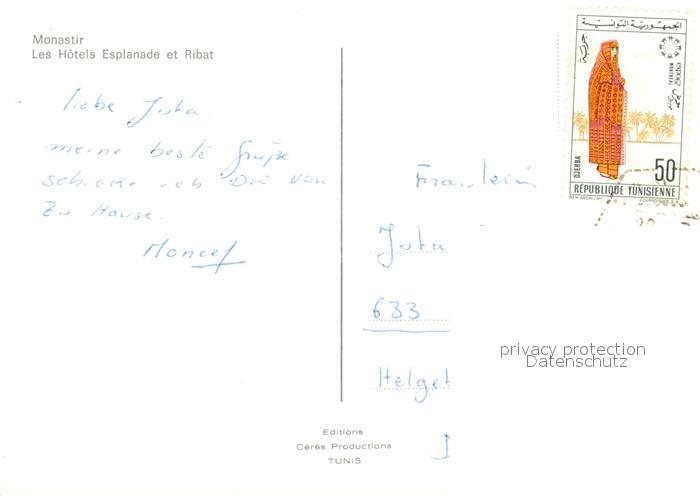 Monastir
Les Hôtels Esplanade et Ribat
liebe Juta
meine beste Grüße
schicke ich Dir von
zu Hause.
Moncef
Fraulein
Juta
633
Helget
Editions
Cérès Productions
TUNIS
الجمهورية التونسية
جربة
expo67
MONTREAL
DJERBA
50
RÉPUBLIQUE TUNISIENNE
BEN ABDALLAH
privacy protection
Datenschutz